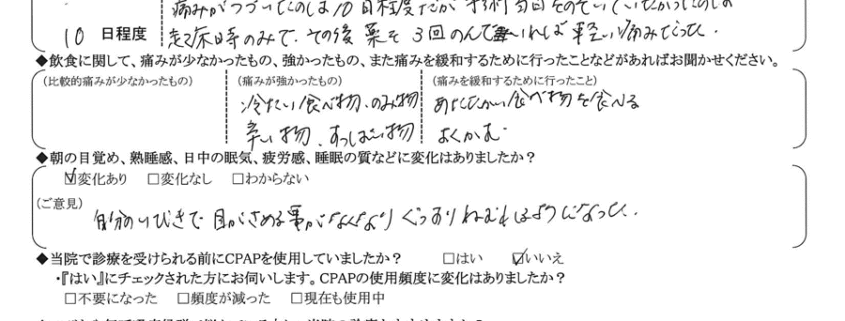 痛みがつづいたのは10日程度だが
10 日程度 起床時のみで、その後薬を3回のんでいれば軽い痛みだった。
◆飲食に関して、痛みが少なかったもの、強かったもの、また痛みを緩和するために行ったことなどがあればお聞かせください。
(比較的痛みが少なかったもの) (痛みが強かったもの) (痛みを緩和するために行ったこと)
冷たい食べ物、のみ物 あたたかい食べ物を食べる
辛い物、すっぱい物 よくかむ
◆朝の目覚め、熟睡感、日中の眠気、疲労感、睡眠の質などに変化はありましたか?
☑変化あり □変化なし □わからない
(ご意見)
自分のいびきで目がさめる事がなくなりぐっすりねむれるようになった。
◆当院で診療を受けられる前にCPAPを使用していましたか? □はい ☑いいえ
・『はい』にチェックされた方にお伺いします。CPAPの使用頻度に変化はありましたか?
□不要になった □頻度が減った □現在も使用中